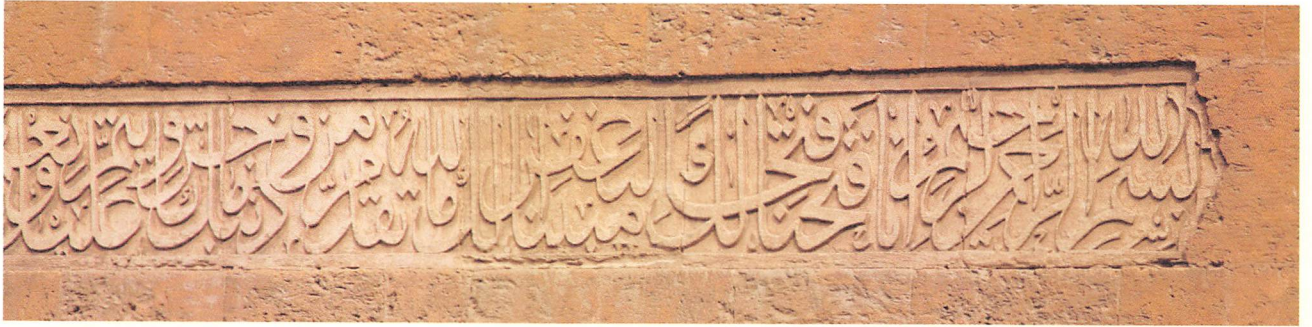 بسم الله الرحمن الرحيم إنا فتحنا لك فتحا مبينا ليغفر لك الله ما تقدم من ذنبك وما تأخر ويتم نعمته عليك و